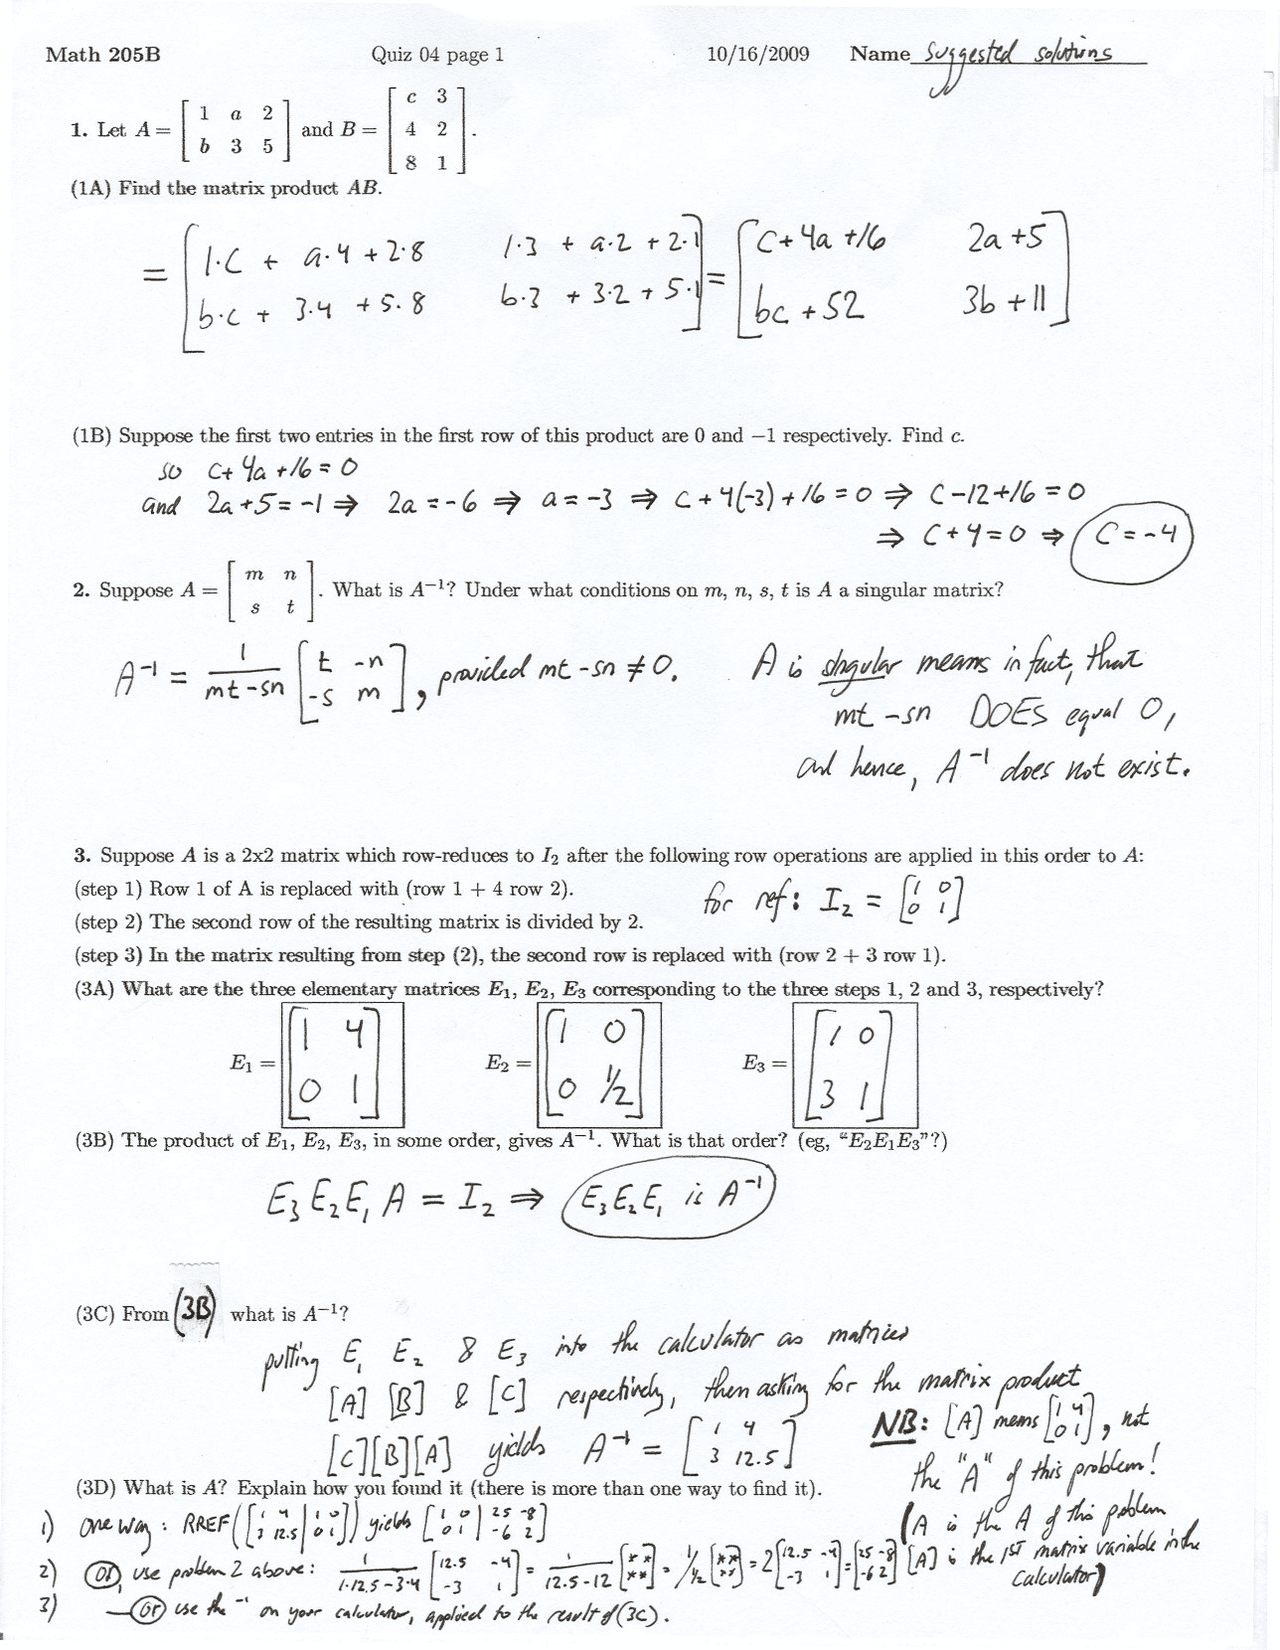 Math 205B Quiz 04 page 1 10/16/2009 Name Suggested solutions
1. Let A = [ 1 a 2 ; b 3 5 ] and B = [ c 3 ; 4 2 ; 8 1 ].
(1A) Find the matrix product AB.
= [ 1·c + a·4 + 2·8 1·3 + a·2 + 2·1 ; b·c + 3·4 + 5·8 b·3 + 3·2 + 5·1 ] = [ c+4a+16 2a+5 ; bc+52 3b+11 ]
(1B) Suppose the first two entries in the first row of this product are 0 and −1 respectively. Find c.
so c+4a+16=0
and 2a+5=-1 ⇒ 2a=-6 ⇒ a=-3 ⇒ c+4(-3)+16=0 ⇒ c-12+16=0
⇒ c+4=0 ⇒ c=-4
2. Suppose A = [ m n ; s t ]. What is A⁻¹? Under what conditions on m, n, s, t is A a singular matrix?
A⁻¹ = 1/(mt-sn) [ t -n ; -s m ], provided mt-sn ≠ 0.
A is singular means in fact, that
mt-sn DOES equal 0,
and hence, A⁻¹ does not exist.
3. Suppose A is a 2x2 matrix which row-reduces to I₂ after the following row operations are applied in this order to A:
(step 1) Row 1 of A is replaced with (row 1 + 4 row 2).
for ref: I₂ = [ 1 0 ; 0 1 ]
(step 2) The second row of the resulting matrix is divided by 2.
(step 3) In the matrix resulting from step (2), the second row is replaced with (row 2 + 3 row 1).
(3A) What are the three elementary matrices E₁, E₂, E₃ corresponding to the three steps 1, 2 and 3, respectively?
E₁ = [ 1 4 ; 0 1 ] E₂ = [ 1 0 ; 0 1/2 ] E₃ = [ 1 0 ; 3 1 ]
(3B) The product of E₁, E₂, E₃, in some order, gives A⁻¹. What is that order? (eg, "E₂E₁E₃"?)
E₃E₂E₁A = I₂ ⇒ E₃E₂E₁ is A⁻¹
(3C) From (3B) what is A⁻¹?
putting E₁ E₂ & E₃ into the calculator as matrices
[A] [B] & [C] respectively, then asking for the matrix product
[C][B][A] yields A⁻¹ = [ 1 4 ; 3 12.5 ]
NB: [A] means [ 1 4 ; 0 1 ], not
the "A" of this problem!
(A is the A of this problem
[A] is the 1ST matrix variable in the
calculator)
(3D) What is A? Explain how you found it (there is more than one way to find it).
1) One way: RREF([ 1 4 | 1 0 ; 3 12.5 | 0 1 ]) yields [ 1 0 | 25 -8 ; 0 1 | -6 2 ]
2) OR, use problem 2 above: 1/(1·12.5-3·4) [ 12.5 -4 ; -3 1 ] = 1/(12.5-12) [ * * ; * * ] = 1/½ [ * * ; * * ] = 2[ 12.5 -4 ; -3 1 ] = [ 25 -8 ; -6 2 ]
3) — OR use the ⁻¹ on your calculator, applied to the result of (3C).